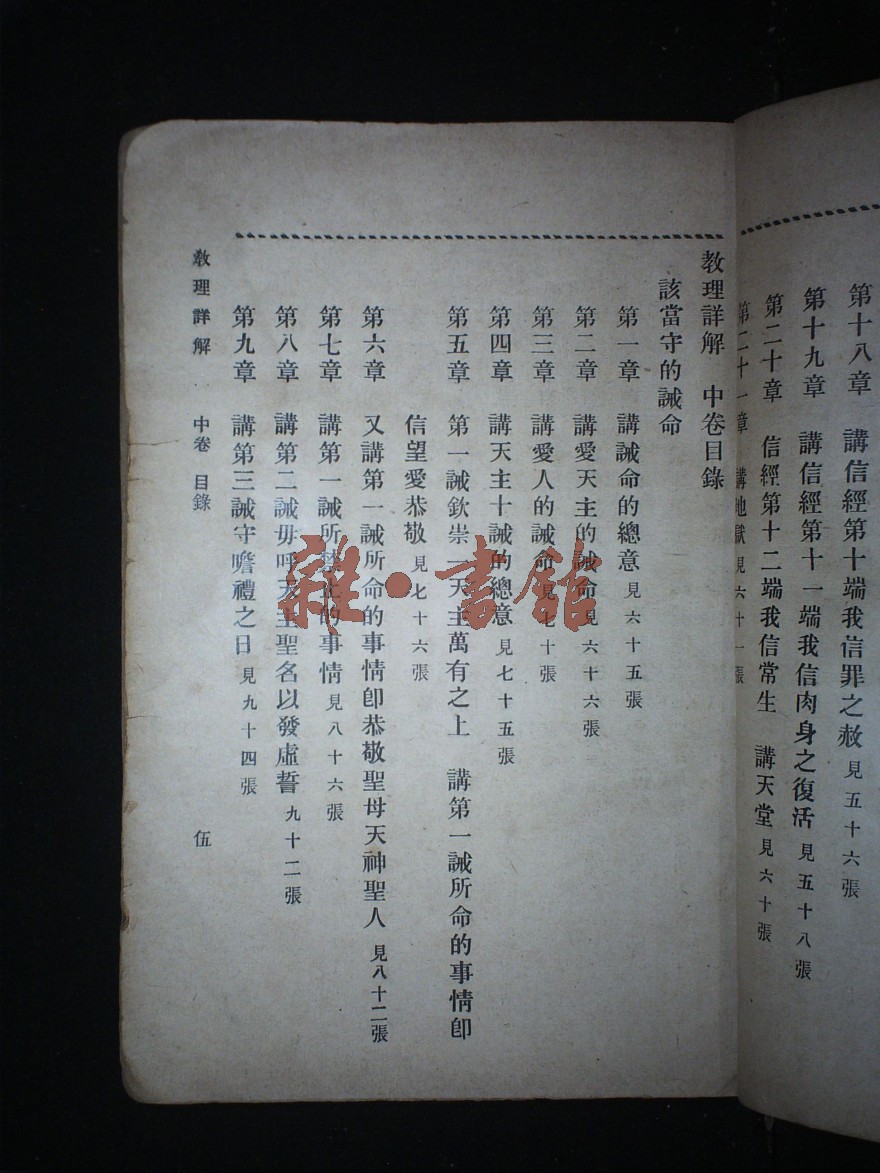 第十八章　講信經第十端我信罪之赦 見五十六張
第十九章　講信經第十一端我信肉身之復活 見五十八張
第二十章　信經第十二端我信常生　講天堂 見六十張
第二十一章　講地獄 見六十一張
教理詳解　中卷目錄
該當守的誡命
第一章　講誡命的總意 見六十五張
第二章　講愛天主的誡命 見六十六張
第三章　講愛人的誡命 見七十張
第四章　講天主十誡的總意 見七十五張
第五章　第一誡欽崇一天主萬有之上　講第一誡所命的事情卽
信望愛恭敬 見七十六張
第六章　又講第一誡所命的事情卽恭敬聖母天神聖人 見八十二張
第七章　講第一誡所禁止的事情 見八十六張
第八章　講第二誡毋呼天主聖名以發虛誓 九十二張
第九章　講第三誡守瞻禮之日 見九十四張
教理詳解　中卷　目錄　伍
雜·書館